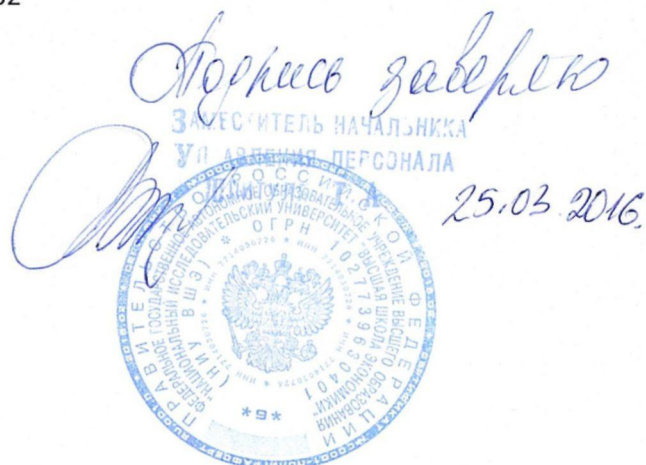 Подпись заверяю
ЗАМЕСТИТЕЛЬ НАЧАЛЬНИКА
УПРАВЛЕНИЯ ПЕРСОНАЛА
25.03.2016.
ПРАВИТЕЛЬСТВО РОССИЙСКОЙ ФЕДЕРАЦИИ
ФЕДЕРАЛЬНОЕ ГОСУДАРСТВЕННОЕ АВТОНОМНОЕ ОБРАЗОВАТЕЛЬНОЕ УЧРЕЖДЕНИЕ ВЫСШЕГО ОБРАЗОВАНИЯ
"НАЦИОНАЛЬНЫЙ ИССЛЕДОВАТЕЛЬСКИЙ УНИВЕРСИТЕТ "ВЫСШАЯ ШКОЛА ЭКОНОМИКИ"
(НИУ ВШЭ) * ОГРН 1027739630401
*6*